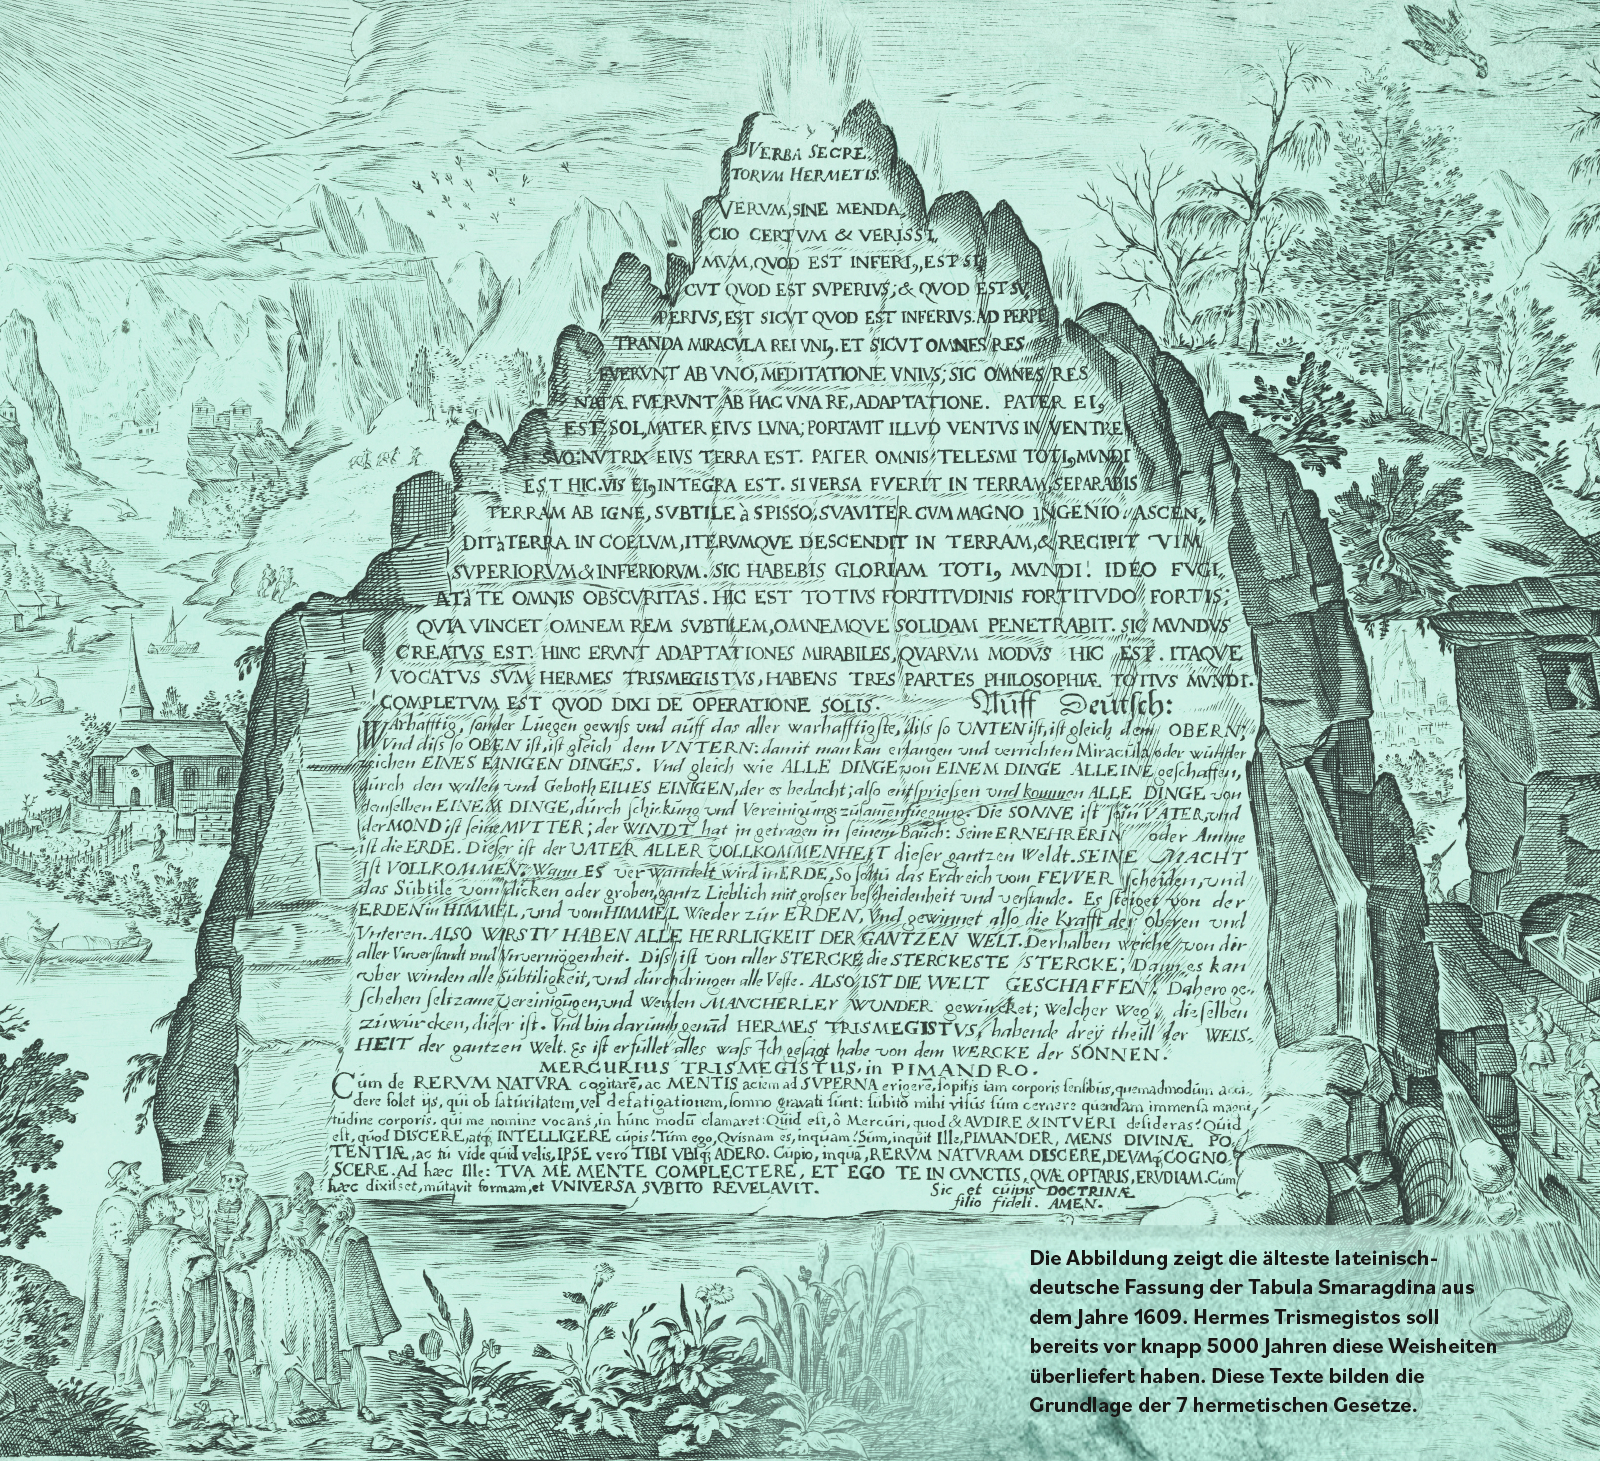 VERBA SECRE,
TORVM HERMETIS.
VERVM, SINE MENDA,
CIO CERTVM & VERISSI,
MVM, QVOD EST INFERI, EST SI,
CVT QVOD EST SVPERIVS; & QVOD EST SV,
PERIVS, EST SICVT QVOD EST INFERIVS. AD PERPE
TRANDA MIRACVLA REI VNI,. ET SICVT OMNES RES
FVERVNT AB VNO, MEDITATIONE VNIVS; SIC OMNES RES
NATÆ FVERVNT AB HAC VNA RE, ADAPTATIONE. PATER EI,
EST SOL, MATER EIVS LVNA; PORTAVIT ILLVD VENTVS IN VENTRE
SVO: NVTRIX EIVS TERRA EST. PATER OMNIS TELESMI TOTI, MVNDI
EST HIC. VIS EI, INTEGRA EST. SI VERSA FVERIT IN TERRAM, SEPARABIS
TERRAM AB IGNE, SVBTILE à SPISSO, SVAVITER CVM MAGNO INGENIO. ASCEN,
DIT à TERRA IN COELVM, ITERVMQVE DESCENDIT IN TERRAM, & RECIPIT VIM
SVPERIORVM & INFERIORVM. SIC HABEBIS GLORIAM TOTI, MVNDI! IDEO FVGI,
AT à TE OMNIS OBSCVRITAS. HIC EST TOTIVS FORTITVDINIS FORTITVDO FORTIS;
QVIA VINCET OMNEM REM SVBTILEM, OMNEMQVE SOLIDAM PENETRABIT. SIC MVNDVS
CREATVS EST. HINC ERVNT ADAPTATIONES MIRABILES, QVARVM MODVS HIC EST. ITAQVE
VOCATVS SVM HERMES TRISMEGISTVS, HABENS TRES PARTES PHILOSOPHIÆ TOTIVS MVNDI.
COMPLETVM EST QVOD DIXI DE OPERATIONE SOLIS. Auff Deutsch:
WArhafftig, sonder Lüegen gewiss und auff das aller warhafftigste, diss so UNTEN ist, ist gleich dem OBERN;
Vnd diss so OBEN ist, ist gleich dem VNTERN: damit man kan erlangen und verrichten Miracula oder wunder
zeichen EINES EINIGEN DINGES. Vnd gleich wie ALLE DINGE von EINEM DINGE ALLEINE geschaffen,
durch den willen und Geboth EINES EINIGEN, der es bedacht; also entspriessen und kommen ALLE DINGE von
demselben EINEM DINGE, durch schickung und Vereinigung zusamenfuegung. Die SONNE ist sein VATER, und
der MOND ist seine MVTTER; der WINDT hat jn getragen in seinem Bauch: Seine ERNEHRERIN oder Amme
ist die ERDE. Dieser ist der VATER ALLER VOLLKOMMENHEIT dieser gantzen Weldt. SEINE MACHT
Jst VOLLKOMMEN; Wann ES verwandelt wird in ERDE, So soltu das Erdreich vom FEVVER scheiden, und
das Subtile vom dicken oder groben, gantz Lieblich mit groser bescheidenheit und verstande. Es steiget von der
ERDEN in HIMMEL, und vom HIMMEL Wieder zur ERDEN, Vnd gewinnet also die Krafft der Oberen und
Vnteren. ALSO WIRSTV HABEN ALLE HERRLIGKEIT DER GANTZEN WELT. Derhalben weiche von dir
aller Vnverstandt und Vnvermögenheit. Diss ist von aller STERCKE die STERCKESTE STERCKE; Dann es kan
über winden alle Subtiligkeit, und durchdringen alle Veste. ALSO IST DIE WELT GESCHAFFEN. Dahero ge,
schehen seltzame Vereinigungen, und Werden MANCHERLEY WUNDER gewürcket; Welcher Weg, dieselben
zuwürcken, dieser ist. Vnd bin darumb genand HERMES TRISMEGISTVS, habende drey theill der WEIS,
HEIT der gantzen Welt. Es ist erfüllet alles wass Jch gesagt habe von dem WERCKE der SONNEN.
MERCURIUS TRISMEGISTUS, in PIMANDRO.
Cùm de RERVM NATVRA cogitarē, ac MENTIS aciem ad SVPERNA erigere, sopitis iam corporis sensibus, quemadmodùm acci,
dere solet ijs, qui ob saturitatem, vel defatigationem, somno gravati sunt: subitò mihi visus sum cernere quendam immensa magni,
tudine corporis, qui me nomine vocans, in hunc modū clamaret: Quid est, ô Mercuri, quod & AVDIRE & INTVERI desideras? Quid
est, quod DISCERE, atq; INTELLIGERE cupis? Tùm ego, Quisnam es, inquam? Sum, inquit Ille, PIMANDER, MENS DIVINÆ PO,
TENTIÆ, ac tu vide quid velis, IPSE verò TIBI VBIq; ADERO. Cupio, inquā, RERVM NATVRAM DISCERE, DEVMq; COGNO,
SCERE. Ad hæc Ille: TVA ME MENTE COMPLECTERE, ET EGO TE IN CVNCTIS, QVÆ OPTARIS, ERVDIAM. Cùm
hæc dixisset, mutavit formam, et VNIVERSA SVBITO REVELAVIT.
Sic et cuipis DOCTRINÆ
filio fideli. AMEN.
Die Abbildung zeigt die älteste lateinisch-
deutsche Fassung der Tabula Smaragdina aus
dem Jahre 1609. Hermes Trismegistos soll
bereits vor knapp 5000 Jahren diese Weisheiten
überliefert haben. Diese Texte bilden die
Grundlage der 7 hermetischen Gesetze.